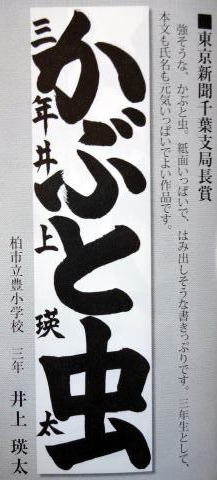 ■東京新聞千葉支局長賞
強そうな、かぶと虫。紙面いっぱいで、はみ出しそうな書きっぷりです。三年生として、
本文も氏名も元気いっぱいでよい作品です。
かぶと虫
三年井上瑛太
柏市立豊小学校 三年 井上瑛太